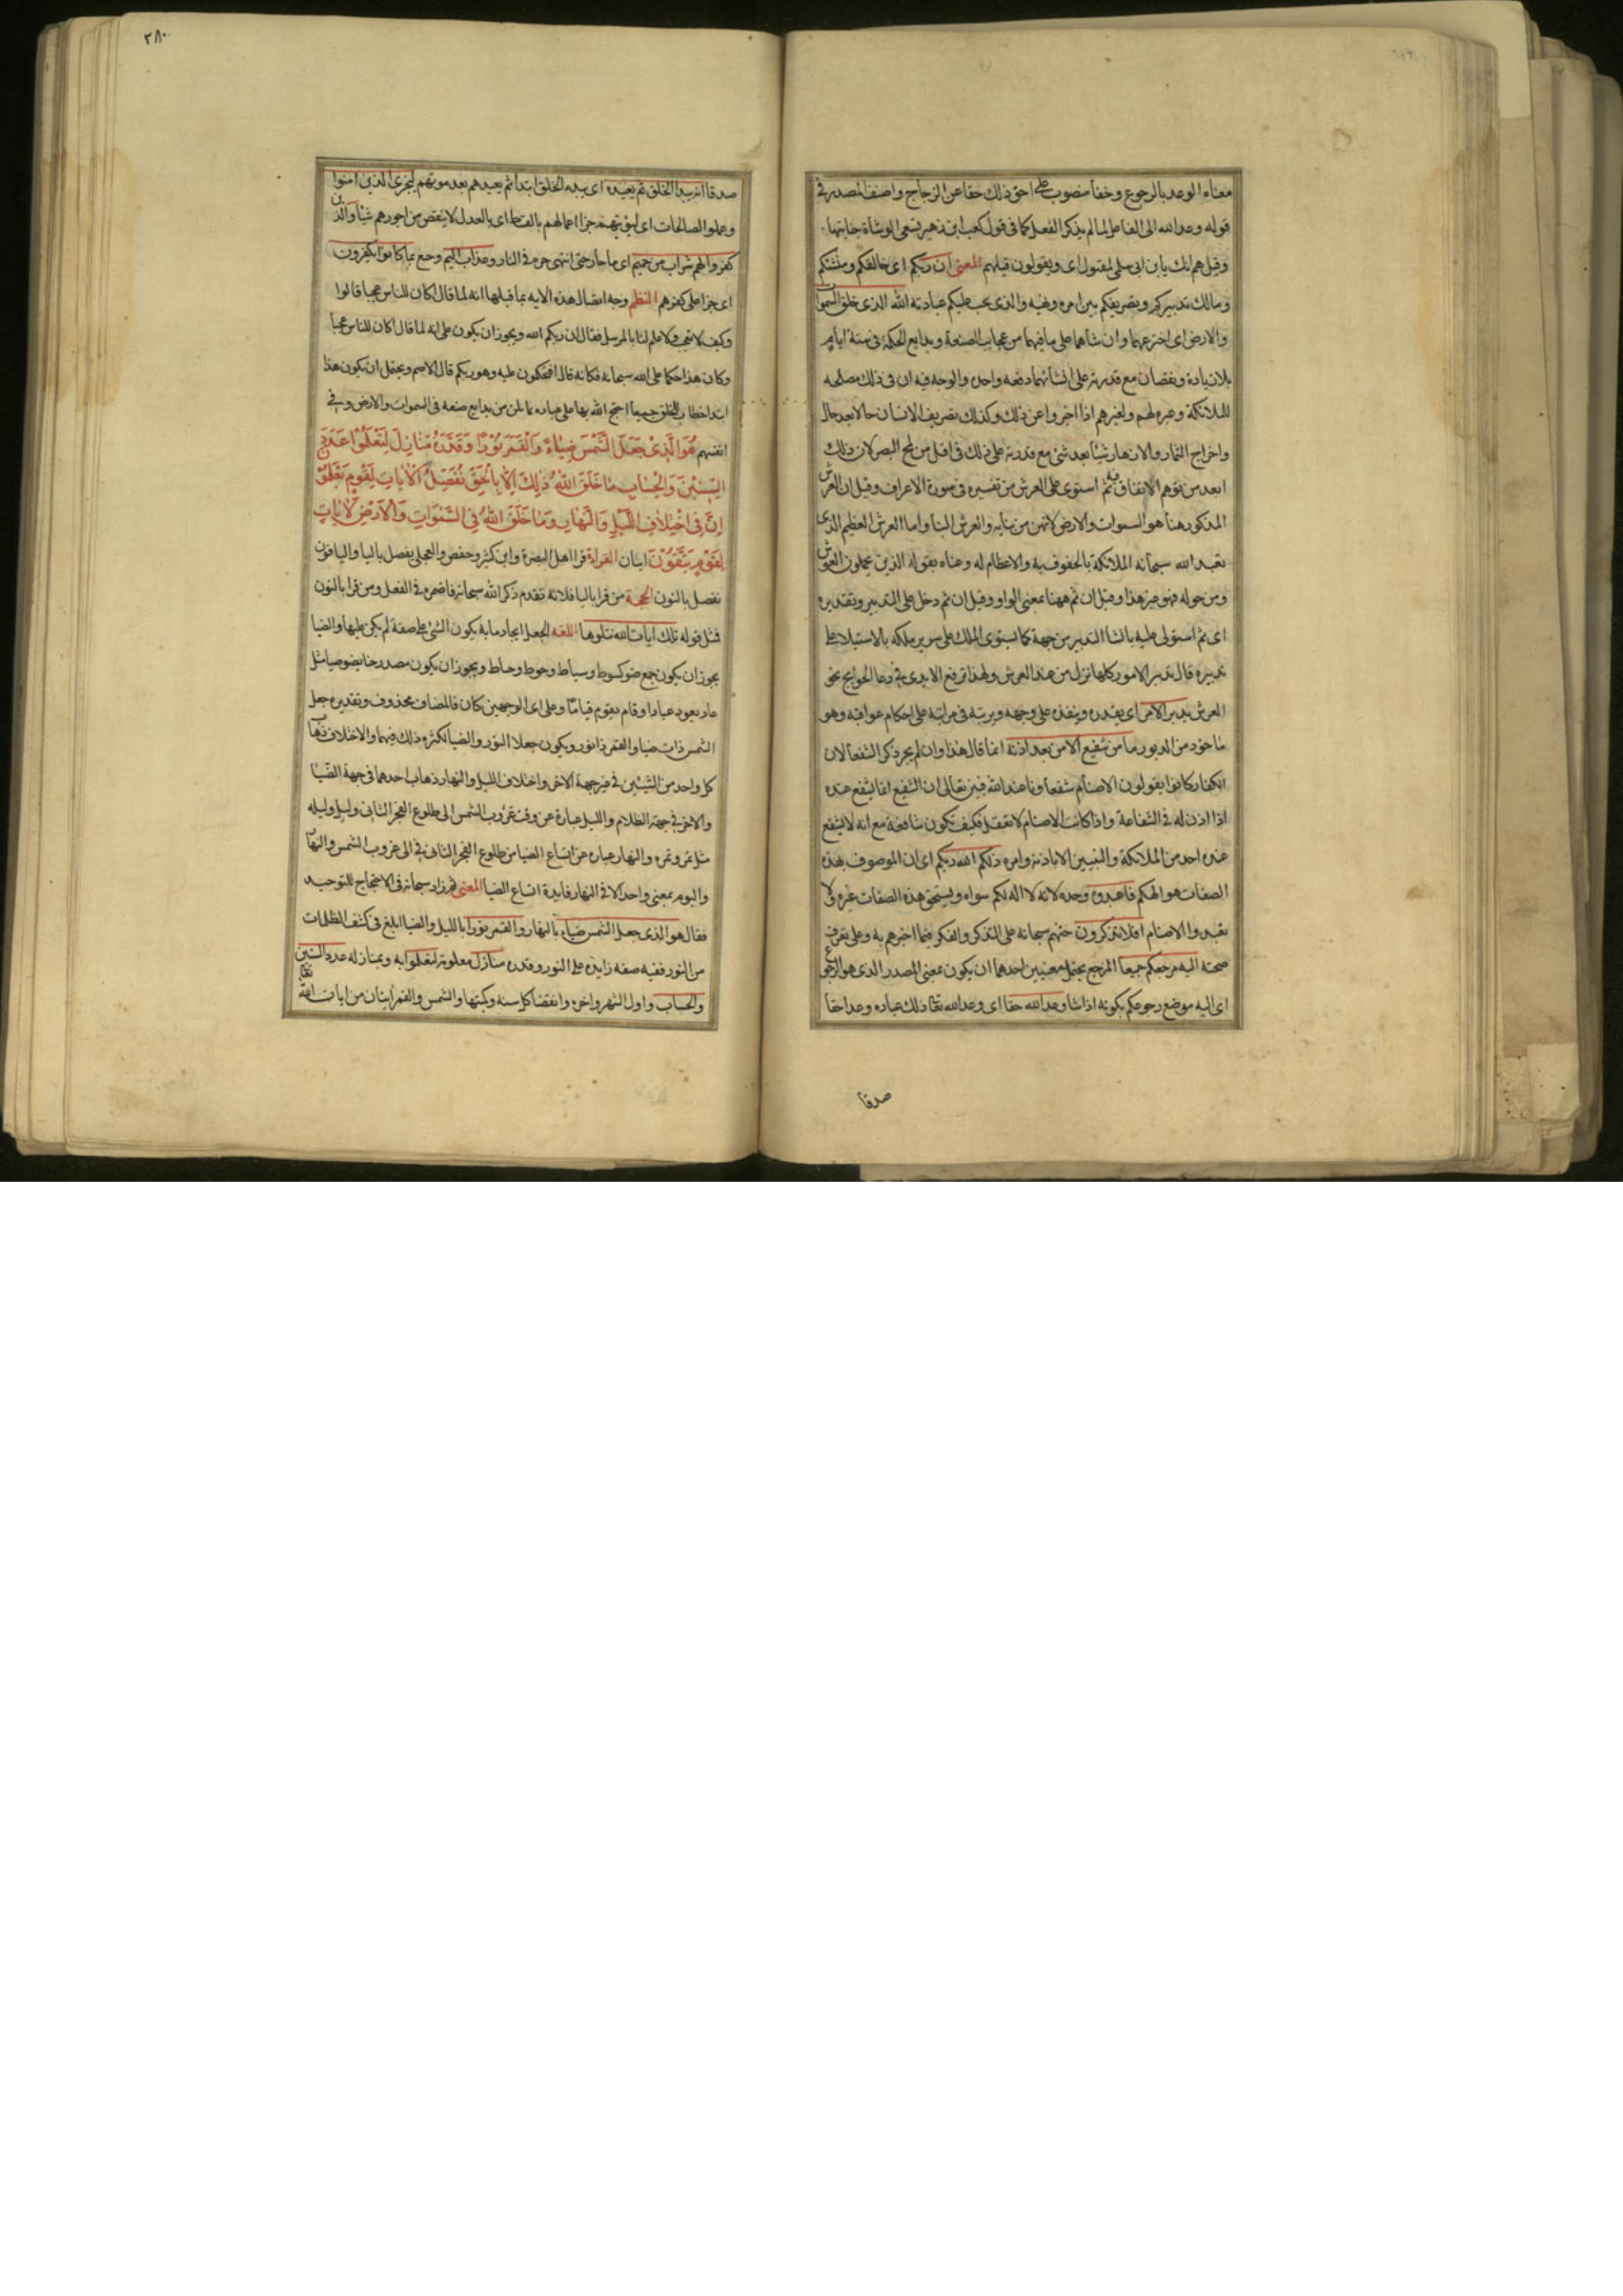 معناه الوعد بالرجوع وحقا منصوب على احق ذلك حقا عن الزجاج واضيف المصدر في
قوله وعد الله الى الفاعل لما لم يذكر الفعل كما في قول كعب ابن زهير تسعى الوشاة جنابتها
وقيلهم انك يا ابن ابى سلمى لمقتول اى ويقولون قيلهم المعنى ان ربكم اى خالقكم ومنشئكم
ومالك تدبيركم وتصريفكم بين امره ونهيه والذى يجب عليكم عبادته الله الذى خلق السموات
والارض اى اخترعهما وانشأهما على ما فيهما من عجايب الصنعة وبدايع الحكمة فى ستة ايام
بلا زيادة ونقصان مع قدرته على انشائهما دفعه واحدة والوجه فيه ان فى ذلك مصلحه
للملائكة وعبرة لهم ولغيرهم اذا اخبروا عن ذلك وكذلك تصريف الانسان حالا بعد حال
واخراج الثمار والازهار شيئا بعد شئ مع قدرته على ذلك فى اقل من لمح البصر لان ذلك
ابعد من توهم الاتفاق فيه ثم استوى على العرش مر تفسيره فى سورة الاعراف وقيل ان العرش
المذكور هنا هو السموات والارض لانهن من بنائه والعرش البنا واما العرش العظيم الذى
تعبد الله سبحانه الملائكة بالحفوف به والاعظام له وعناه بقوله الذين يحملون العرش
ومن حوله فهو غير هذا وقيل ان ثم ههنا بمعنى الواو وقيل ان ثم دخل على التدبير وتقديره
اى ثم استولى عليه بانشا التدبير من جهة كما يستوى الملك على سرير ملكه بالاستيلا على
تدبيره قال تدبير الامور كلها تنزل من عند العرش ولهذا ترفع الايدى فى دعا الحوايج نحو
العرش يدبر الامر اى يقدره وينفذه على وجهه ويرتبه فى مراتبه على احكام عواقبه وهو
ماخوذ من الدبور ما من شفيع الا من بعد اذنه انما قال هذا وان لم يجر ذكر الشفعا لان
الكفار كانوا يقولون الاصنام شفعاونا عند الله فبين تعالى ان الشفيع انما يشفع عنده
اذا اذن له فى الشفاعة واذا كانت الاصنام لا تعقل فكيف تكون شافعة مع انه لا يشفع
عنده احد من الملائكة والنبيين الا باذنه وامره ذلكم الله ربكم اى ان الموصوف بهذه
الصفات هو الهكم فاعبدوه وحده لانه لا اله لكم سواه ولا يستحق هذه الصفات غيره ولا
تعبدوا الاصنام افلا تذكرون حثهم سبحانه على التذكر والفكر فيما اخبرهم به وعلى تعرف
صحته اليه مرجعكم جميعا المرجع يحتمل معنيين احدهما ان يكون بمعنى المصدر الذى هو الرجوع
اى اليه موضع رجوعكم يكونه اذا شا وعد الله حقا اى وعد الله تعا ذلك عباده وعدا حقا
صدقا
٢٨٠
صدقا انه يبدا الخلق ثم يعيده اى يبدء الخلق ابتدا ثم يعيدهم بعد موتهم ليجزى الذين امنوا
وعملوا الصالحات اى ليؤتيهم جزا اعمالهم بالقسط اى بالعدل لا ينقص من اجورهم شيئا والذين
كفروا لهم شراب من حميم اى ما حار حتى انتهى حره فى النار وعذاب اليم وجع بما كانوا يكفرون
اى جزا على كفرهم النظم وجه اتصال هذه الايه بما قبلها انه لما قال اكان للناس عجبا قالوا
وكيف لا نتعجب ولا علم لنا بالمرسل فقال ان ربكم الله ويجوز ان يكون على انه لما قال اكان للناس عجبا
وكان هذا حكما على الله سبحانه فكانه قال افتحكمون عليه وهو ربكم قال الاصم ويحتمل ان يكون هذا
ابتدا خطاب للخلق جميعا احتج الله بها على عباده بما بين من بدايع صنعه فى السموات والارض وفى
انفسهم هُوَ الَّذِي جَعَلَ الشَّمْسَ ضِيَاءً وَالْقَمَرَ نُورًا وَقَدَّرَهُ مَنَازِلَ لِتَعْلَمُوا عَدَدَ
السِّنِينَ وَالْحِسَابَ مَا خَلَقَ اللَّهُ ذَلِكَ إِلَّا بِالْحَقِّ نُفَصِّلُ الْآيَاتِ لِقَوْمٍ يَعْلَمُونَ
إِنَّ فِي اخْتِلَافِ اللَّيْلِ وَالنَّهَارِ وَمَا خَلَقَ اللَّهُ فِي السَّمَوَاتِ وَالْأَرْضِ لَآيَاتٍ
لِقَوْمٍ يَتَّقُونَ ايتان القراءة قرا اهل البصرة وابن كثير وحفص والعجلى يفصل باليا والباقون
نفصل بالنون الحجة من قرا باليا فلانه تقدم ذكر الله سبحانه فاضمره فى الفعل ومن قرا بالنون
فمثل قوله تلك ايات الله نتلوها اللغه الجعل ايجاد ما به يكون الشئ على صفة لم يكن عليها والضيا
يجوز ان يكون جمع ضو كسوط وسياط وحوط وحياط ويجوز ان يكون مصدر ضا يضو ضيا مثل
عاد يعود عيادا وقام يقوم قياما وعلى اى الوجهين كان فالمضاف محذوف وتقديره جعل
الشمس ذات ضيا والقمر ذا نور ويكون جعلا النور والضيا لكثرة ذلك فيهما والاختلاف ذهاب
كل واحد من الشيئين فى غير جهة الاخر واختلاف الليل والنهار ذهاب احدهما فى جهة الضيا
والاخر فى جهة الظلام والليل عبارة عن وقت غروب الشمس الى طلوع الفجر الثانى وليل وليله
مثل تمر وتمره والنهار عباره عن اتساع الضيا من طلوع الفجر الثانى الى غروب الشمس والنهار
واليوم بمعنى واحد الا فى النهار فايدة اتساع الضيا المعنى ثم زاد سبحانه فى الاحتجاج للتوحيد
فقال هو الذى جعل الشمس ضياء بالنهار والقمر نورا بالليل والضيا ابلغ فى كشف الظلمات
من النور ففيه صفه زايدة على النور وقدره منازل معلومة لتعلموا به وبمنازله عدد السنين
والحساب واول الشهر واخره وانقضا كل سنه وكميتها والشمس والقمر ايتان من ايات الله تعا